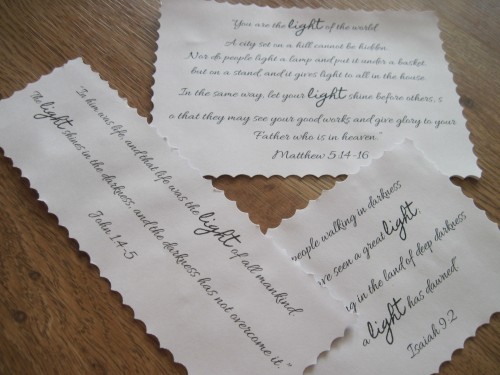 "You are the light of the world
A city set on a hill cannot be hidden.
Nor do people light a lamp and put it under a basket
but on a stand, and it gives light to all in the house.
In the same way, let your light shine before others, s
o that they may see your good works and give glory to your
Father who is in heaven."
Matthew 5:14-16
"In him was life, and that life was the light of all mankind
The light shines in the darkness, and the darkness has not overcome it."
John 1:4-5
people walking in darkness
ve seen a great light,
g in the land of deep darkness
a light has dawned"
Isaiah 9:2